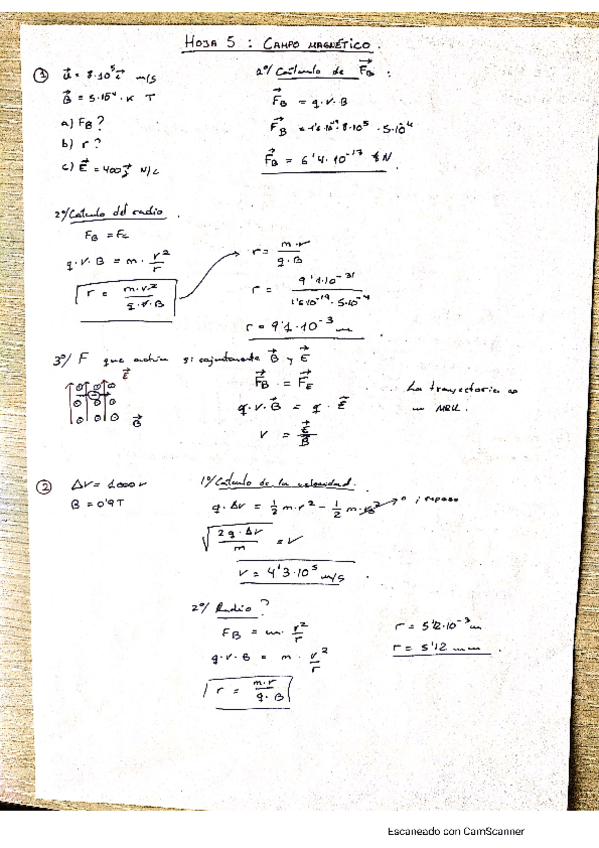 HOJA 5 : CAMPO MAGNÉTICO.
① u⃗ = 8·10⁵ i⃗ m/s
B⃗ = 5·10⁻⁴·K T
a) F_B?
b) r?
c) E⃗ = 400 j⃗ N/C
1º/ Cálculo de F⃗_B :
F⃗_B = q·v·B
F⃗_B = 1'6·10⁻¹⁹·8·10⁵·5·10⁻⁴
F⃗_B = 6'4·10⁻¹⁷ N
2º/ Cálculo del radio.
F_B = F_c
q·v·B = m·v²/r
r = m·v²/q·v·B
r = m·v/q·B
r = 9'1·10⁻³¹/1'6·10⁻¹⁹·5·10⁻⁴
r = 9'1·10⁻³ m
3º/ F que actúa si conjuntamente B⃗ y E⃗
E⃗
B⃗
F⃗_B = F⃗_E
q·v·B⃗ = q·E⃗
v = E⃗/B⃗
La trayectoria es
un MRU.
② ΔV = 1000 V
B = 0'9 T
1º/ Cálculo de la velocidad.
q·ΔV = 1/2 m·v² − 1/2 m·v₀² → 0 ; reposo
√(2q·ΔV/m) = v
v = 4'3·10⁵ m/s
2º/ Radio?
F_B = m·v²/r
q·v·B = m·v²/r
r = m·v/q·B
r = 5'12·10⁻³ m
r = 5'12 mm.
Escaneado con CamScanner